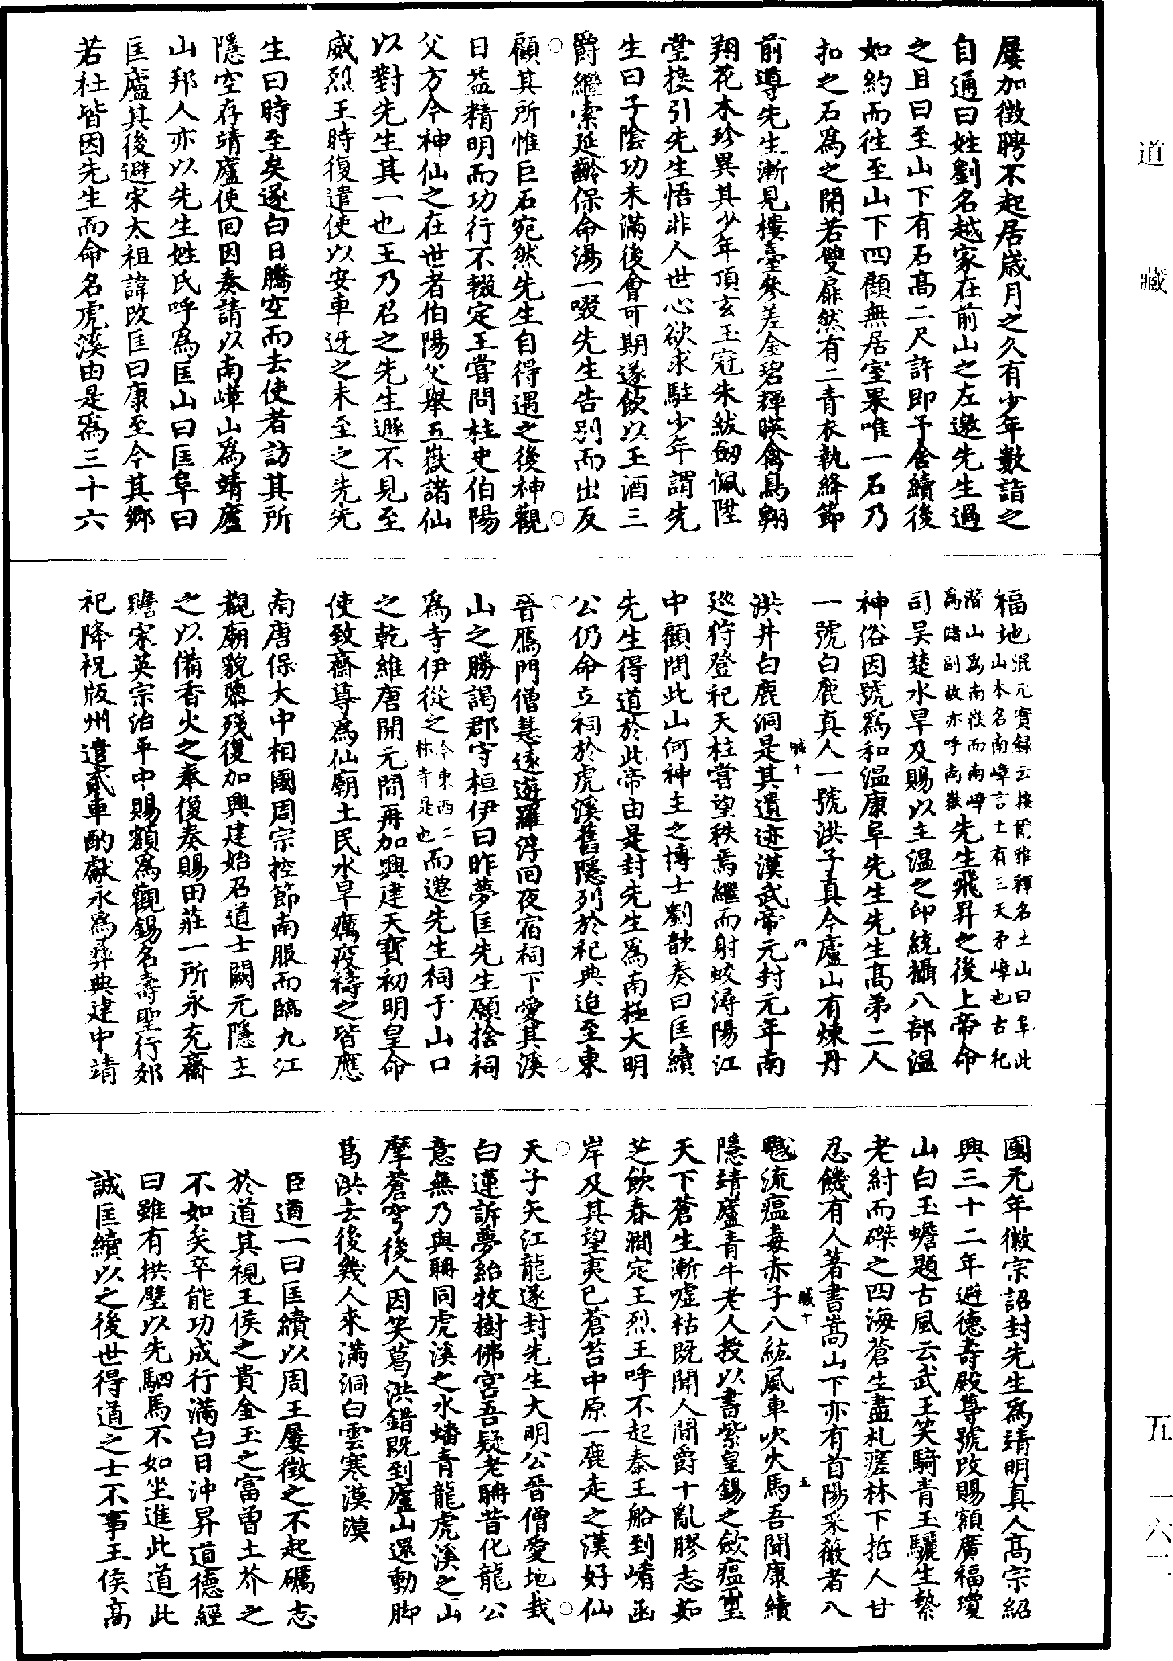 道藏
五一六一
屢加徵聘不起居歲月之久有少年數詣之
自通曰姓劉名越家在前山之左邀先生過
之且曰至山下有石高二尺許即予舍續後
如約而往至山下四顧無居室果唯一石乃
扣之石為之開若雙扉然有二青衣執絳節
前導先生漸見樓臺參差金碧輝暎禽鳥翱
翔花木珍異其少年頂玄玉冠朱紱劒佩陞
堂接引先生悟非人世心欲求駐少年謂先
生曰子陰功未滿後會可期遂飲以玉酒三
爵繼索延齡保命湯一啜先生告別而出反
顧其所惟巨石宛然先生自得遇之後神觀
日益精明而功行不輟定王嘗問柱史伯陽
父方今神仙之在世者伯陽父舉五嶽諸仙
以對先生其一也王乃召之先生遯不見至
威烈王時復遣使以安車迓之未至之先先
生曰時至矣遂白日騰空而去使者訪其所
隱空存靖廬使回因奏請以南嶂山為靖廬
山邦人亦以先生姓氏呼為匡山曰匡阜曰
匡廬其後避宋太祖諱改匡曰康至今其鄉
若社皆因先生而命名虎溪由是為三十六
福地混元實錄云按爾雅釋名土山曰阜此
山本名南嶂言土有三天子嶂也古祀
潛山為南嶽而南嶂
為儲副故亦呼南嶽先生飛昇之後上帝命
司吳楚水旱及賜以主溫之印統攝八部溫
神俗因號為和溫康阜先生先生高弟二人
一號白鹿真人一號洪子真今廬山有煉丹
洪井白鹿洞是其遺迹漢武帝元封元年南
巡狩登祀天柱嘗望秩焉繼而射蛟潯陽江
中顧問此山何神主之博士劉歆奏曰匡續
先生得道於此帝由是封先生為南極大明
公仍命立祠於虎溪舊隱列於祀典迨至東
晉鴈門僧慧遠遊羅浮回夜宿祠下愛其溪
山之勝謁郡守桓伊曰昨夢匡先生願捨祠
為寺伊從之今東西二
林寺是也而遷先生祠于山口
之乾維唐開元間再加興建天寶初明皇命
使致齋尊為仙廟土民水旱癘疫禱之皆應
南唐保大中相國周宗控節南服而臨九江
觀廟貌隳殘復加興建始召道士闕元隱主
之以備香火之奉復奏賜田莊一所永充齋
贍宋英宗治平中賜額為觀錫名壽聖行郊
祀降祝版州遣貳車酌獻永為彞典建中靖
國元年徽宗詔封先生為靖明真人高宗紹
興三十二年避德壽殿尊號改賜額廣福瓊
山白玉蟾題古風云武王笑騎青玉驪生縶
老紂而磔之四海蒼生盡札瘥林下哲人甘
忍饑有人著書嵩山下亦有首陽采薇者八
魃流瘟毒赤子八紘風車吹火馬吾聞康續
隱靖廬青牛老人授以書紫皇錫之斂瘟璽
天下蒼生漸噓枯既聞人間爵十亂膠志茹
芝飲春澗定王烈王呼不起秦王船到崤函
岸及其望夷已蒼苔中原一鹿走之漢好仙
天子矢江龍遂封先生大明公晉僧愛地栽
白蓮訴夢紿牧樹佛宮吾疑老聃昔化龍公
意無乃與聃同虎溪之水蟠青龍虎溪之山
摩蒼穹後人因笑葛洪錯既到廬山還動脚
葛洪去後幾人來滿洞白雲寒漠漠
臣道一曰匡續以周王屢徵之不起礪志
於道其視王侯之貴金玉之富曾土芥之
不如矣卒能功成行滿白日沖昇道德經
曰雖有拱璧以先駟馬不如坐進此道此
誠匡續以之後世得道之士不事王侯高